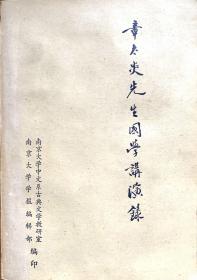 章太炎先生國學講演錄
南京大学中文系古典文学教研室
南京大学学报编辑部 编印